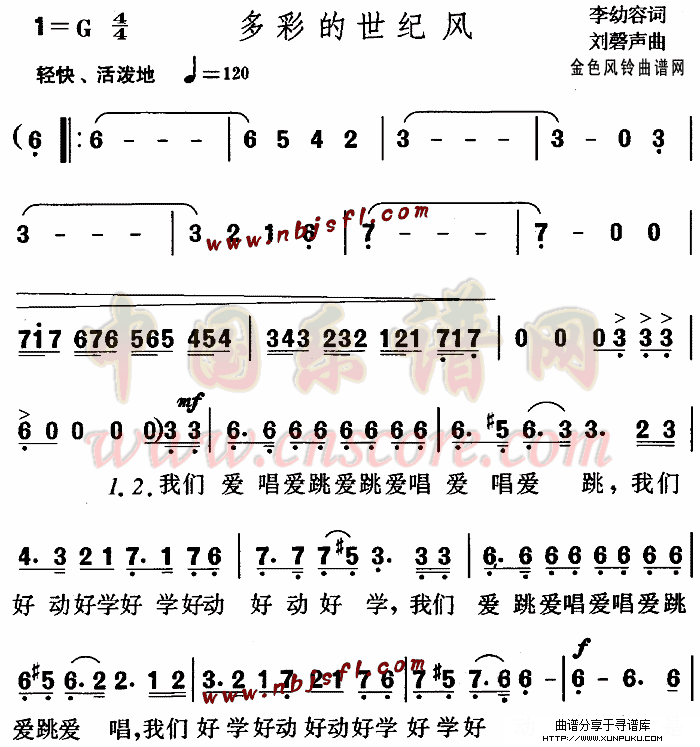 1=G 4/4 多彩的世纪风 李幼容词
刘磬声曲
轻快、活泼地 ♩=120 金色风铃曲谱网
(6 ‖: 6 - - - | 6 5 4 2 | 3 - - - | 3 - 0 3 |
3 - - - | 3 2 1 6 | 7 - - - | 7 - 0 0 |
www.nbjsfl.com
717 676 565 454 | 343 232 121 717 | 0 0 0 3 3 3 |
中国乐谱网
mf
6 0 0 0 0) 3 3 | 6. 6 6 6 6 6 6 6 6 | 6. #5 6. 3 3. 2 3 |
www.cnscore.com
1.2.我们 爱 唱爱跳爱跳爱唱 爱 唱爱 跳,我们
4. 3 2 1 7. 1 7 6 | 7. 7 7 #5 3. 3 3 | 6. 6 6 6 6 6 6 6 |
好 动好学好 学好动 好 动好 学,我们 爱 跳爱唱爱唱爱跳
f
6 #5 6. 2 2. 1 2 | 3. 2 1 7 2 1 7 6 | 7 #5 7. 6 6 - | 6 - 6. 6 |
www.nbjsfl.com
爱跳爱 唱,我们 好 学好动 好动好学 好 学好
曲谱分享于寻谱库
HTTP://WWW.XUNPUKU.COM